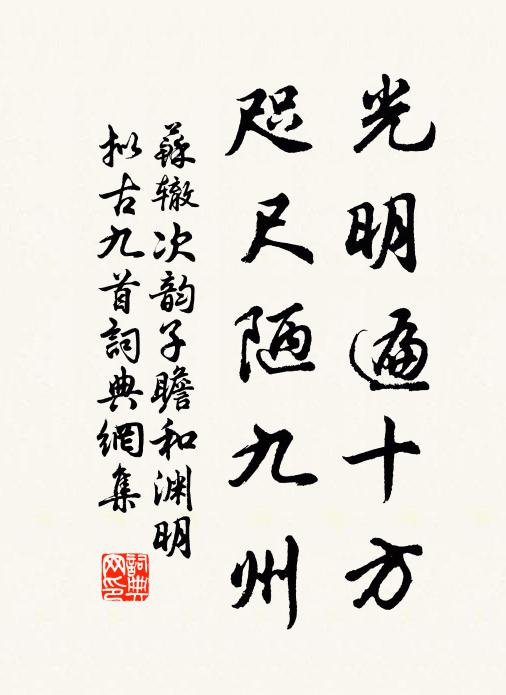 光明遍十方
咫尺陋九州
蘇辙次韵子瞻和渊明
拟古九首詞典網集
詞典
网印